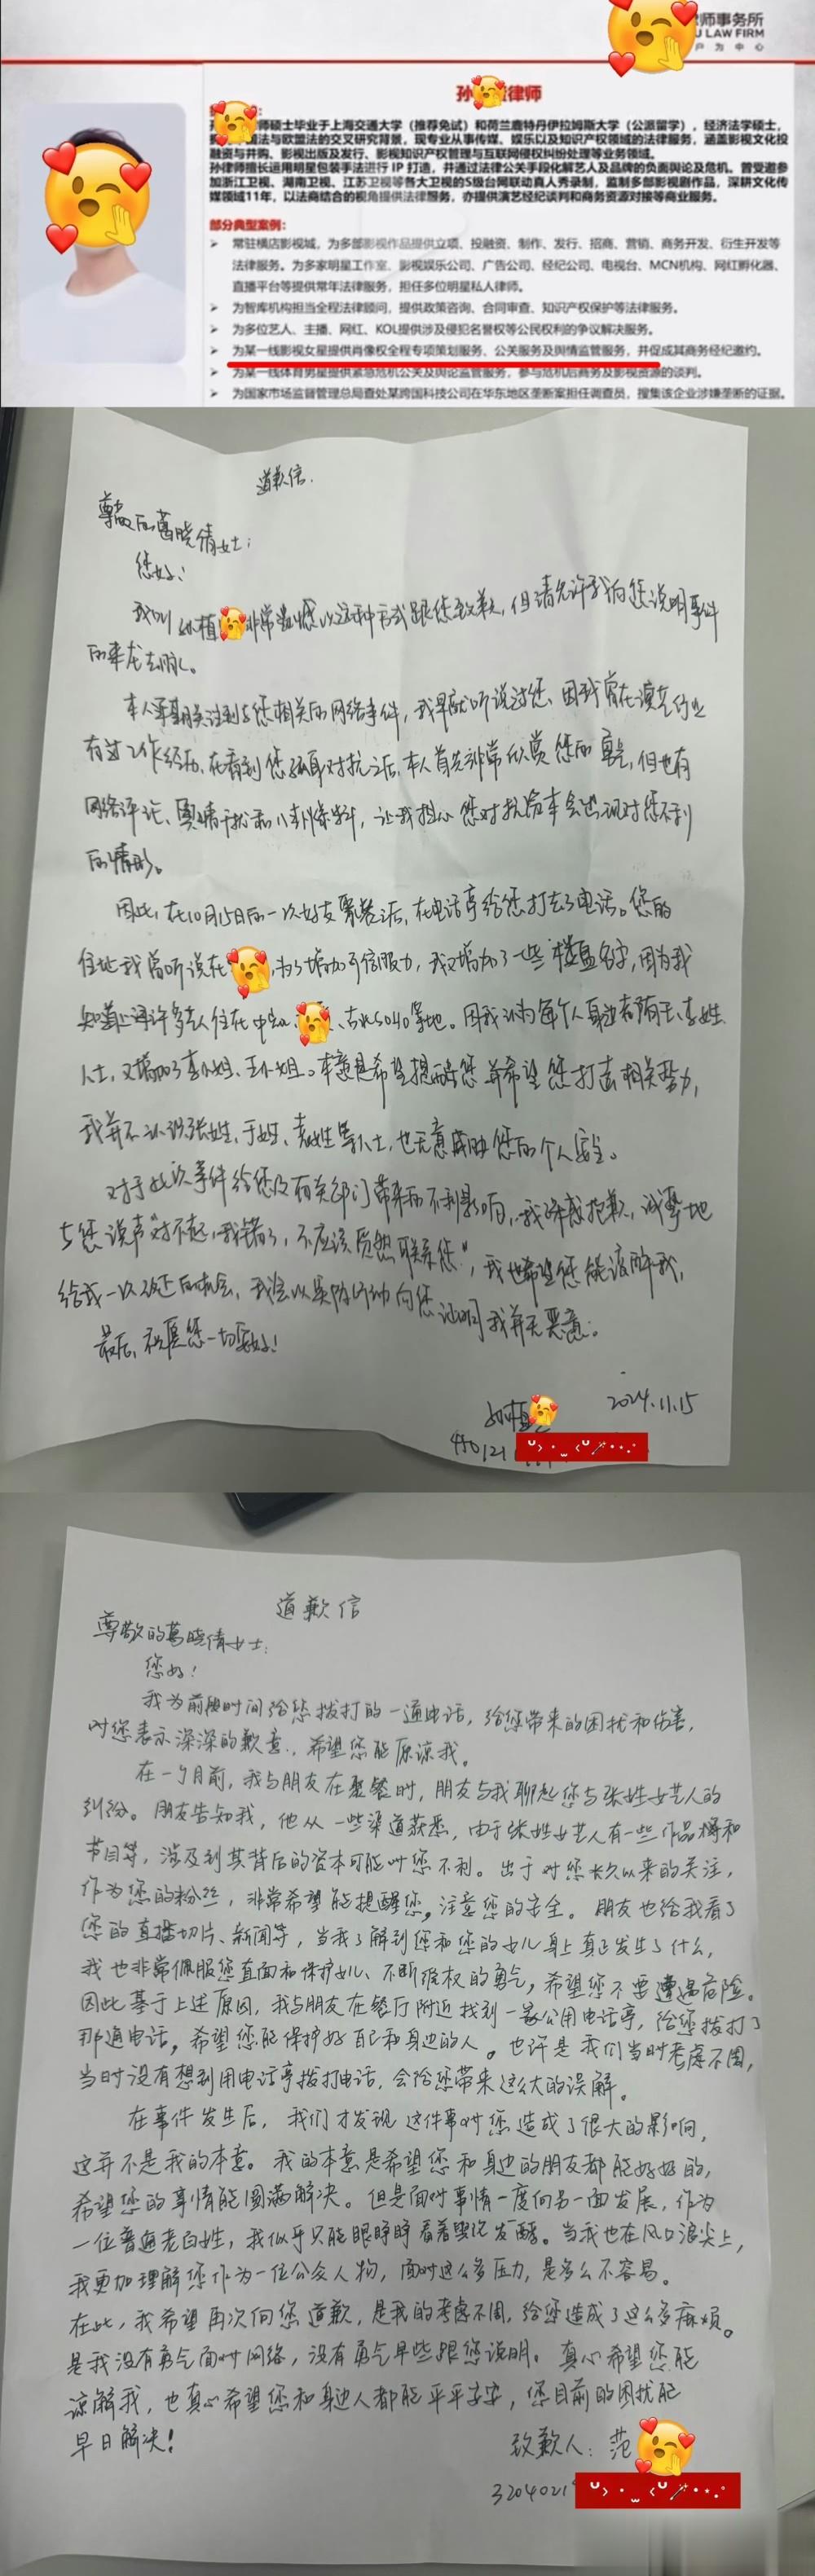 师事务所
U LAW FIRM
户 为 中 心
孙 律师
师硕士毕业于上海交通大学（推荐免试）和荷兰鹿特丹伊拉姆斯大学（公派留学），经济法学硕士，
法与欧盟法的交叉研究背景。现专业从事传媒、娱乐以及知识产权领域的法律服务，涵盖影视文化投
融资与并购、影视出版及发行、影视知识产权管理与互联网侵权纠纷处理等业务领域。
孙律师擅长运用明星包装手法进行 IP 打造，并通过法律公关手段化解艺人及品牌的负面舆论及危机。曾受邀参
加浙江卫视、湖南卫视、江苏卫视等各大卫视的S级台网联动真人秀录制，监制多部影视剧作品，深耕文化传
媒领域11年，以法商结合的视角提供法律服务，亦提供演艺经纪谈判和商务资源对接等商业服务。
部分典型案例：
常驻横店影视城，为多部影视作品提供立项、投融资、制作、发行、招商、营销、商务开发、衍生开发等
法律服务。为多家明星工作室、影视娱乐公司、广告公司、经纪公司、电视台、MCN机构、网红孵化器、
直播平台等提供常年法律服务，担任多位明星私人律师。
为智库机构担当全程法律顾问，提供政策咨询、合同审查、知识产权保护等法律服务。
为多位艺人、主播、网红、KOL提供涉及侵犯名誉权等公民权利的争议解决服务。
为某一线影视女星提供肖像权全程专项策划服务、公关服务及舆情监管服务，并促成其商务经纪邀约。
为某一线体育男星提供紧急危机公关及舆论监管服务，参与危机后商务及影视资源的谈判。
为国家市场监督管理总局查处某跨国科技公司在华东地区垄断案担任调查员，搜集该企业涉嫌垄断的证据。
道歉信.
尊敬的葛晓倩女士：
您好！
我叫孙植 非常遗憾以这种方式跟您致歉，但请允许我向您说明事件
的来龙去脉。
本人早期关注到与您相关的网络事件，我早就听说过您、因我曾在演艺行业
有过工作经历、在看到您孤身对抗之后，本人首先非常欣赏您的勇气，但也有
网络评论、舆情干扰和八卦爆料，让我担心您对抗资本会出现对您不利
的情形。
因此，在10月15日的一次好友聚餐后，在电话亭给您打去了电话。您的
住址我曾听说在 ，为了增加可信服力，我又增加了一些楼盘名字，因为我
知道上海许多艺人住在中 、古北SOHO等地。因我认为每个人身边都有王、李姓
人士，又增加了李小姐、王小姐。本意是希望提醒您并希望您打击相关势力，
我并不认识张姓、于姓、袁姓等人士，也无意威胁您的个人安全。
对于此次事件给您及有关部门带来的不利影响，我深感抱歉，诚挚地
与您说声“对不起，我错了，不应该贸然联系您”，我也希望您能谅解我，
给我一次改正的机会，我会以实际行动向您证明我并无恶意。
最后，祝愿您一切安好！
孙植 2024.11.15
440121
道歉信
尊敬的葛晓倩女士：
您好！
我为前段时间给您拨打的一通电话，给您带来的困扰和伤害，
对您表示深深的歉意，希望您能原谅我。
在一个月前，我与朋友在聚餐时，朋友与我聊起您与张姓女艺人的
纠纷。朋友告知我，他从一些渠道获悉，由于张姓女艺人有一些作品播和
节目等，涉及到其背后的资本可能对您不利。出于对您长久以来的关注，
作为您的粉丝，非常希望能提醒您，注意您的安全。朋友也给我看了
您的直播切片、新闻等，当我了解到您和您的女儿身上真正发生了什么，
我也非常佩服您直面和保护女儿、不断维权的勇气，希望您不要遭遇危险。
因此基于上述原因，我与朋友在餐厅附近找到一家公用电话亭，给您拨打了
那通电话，希望您能保护好自己和身边的人。也许是我们当时考虑不周，
当时没有想到用电话亭拨打电话，会给您带来这么大的误解。
在事件发生后，我们才发现这件事对您造成了很大的影响，
这并不是我的本意。我的本意是希望您和身边的朋友都能好好的，
希望您的事情能圆满解决。但是面对事情一度向另一面发展，作为
一位普通老百姓，我似乎只能眼睁睁看着舆论发酵。当我也在风口浪尖上，
我更加理解您作为一位公众人物，面对这么多压力，是多么不容易。
在此，我希望再次向您道歉，是我的考虑不周，给您造成了这么多麻烦。
是我没有勇气面对网络，没有勇气早些跟您说明。真心希望您能
谅解我，也真心希望您和身边人都能平平安安，您目前的困扰能
早日解决！
致歉人：范
3204021